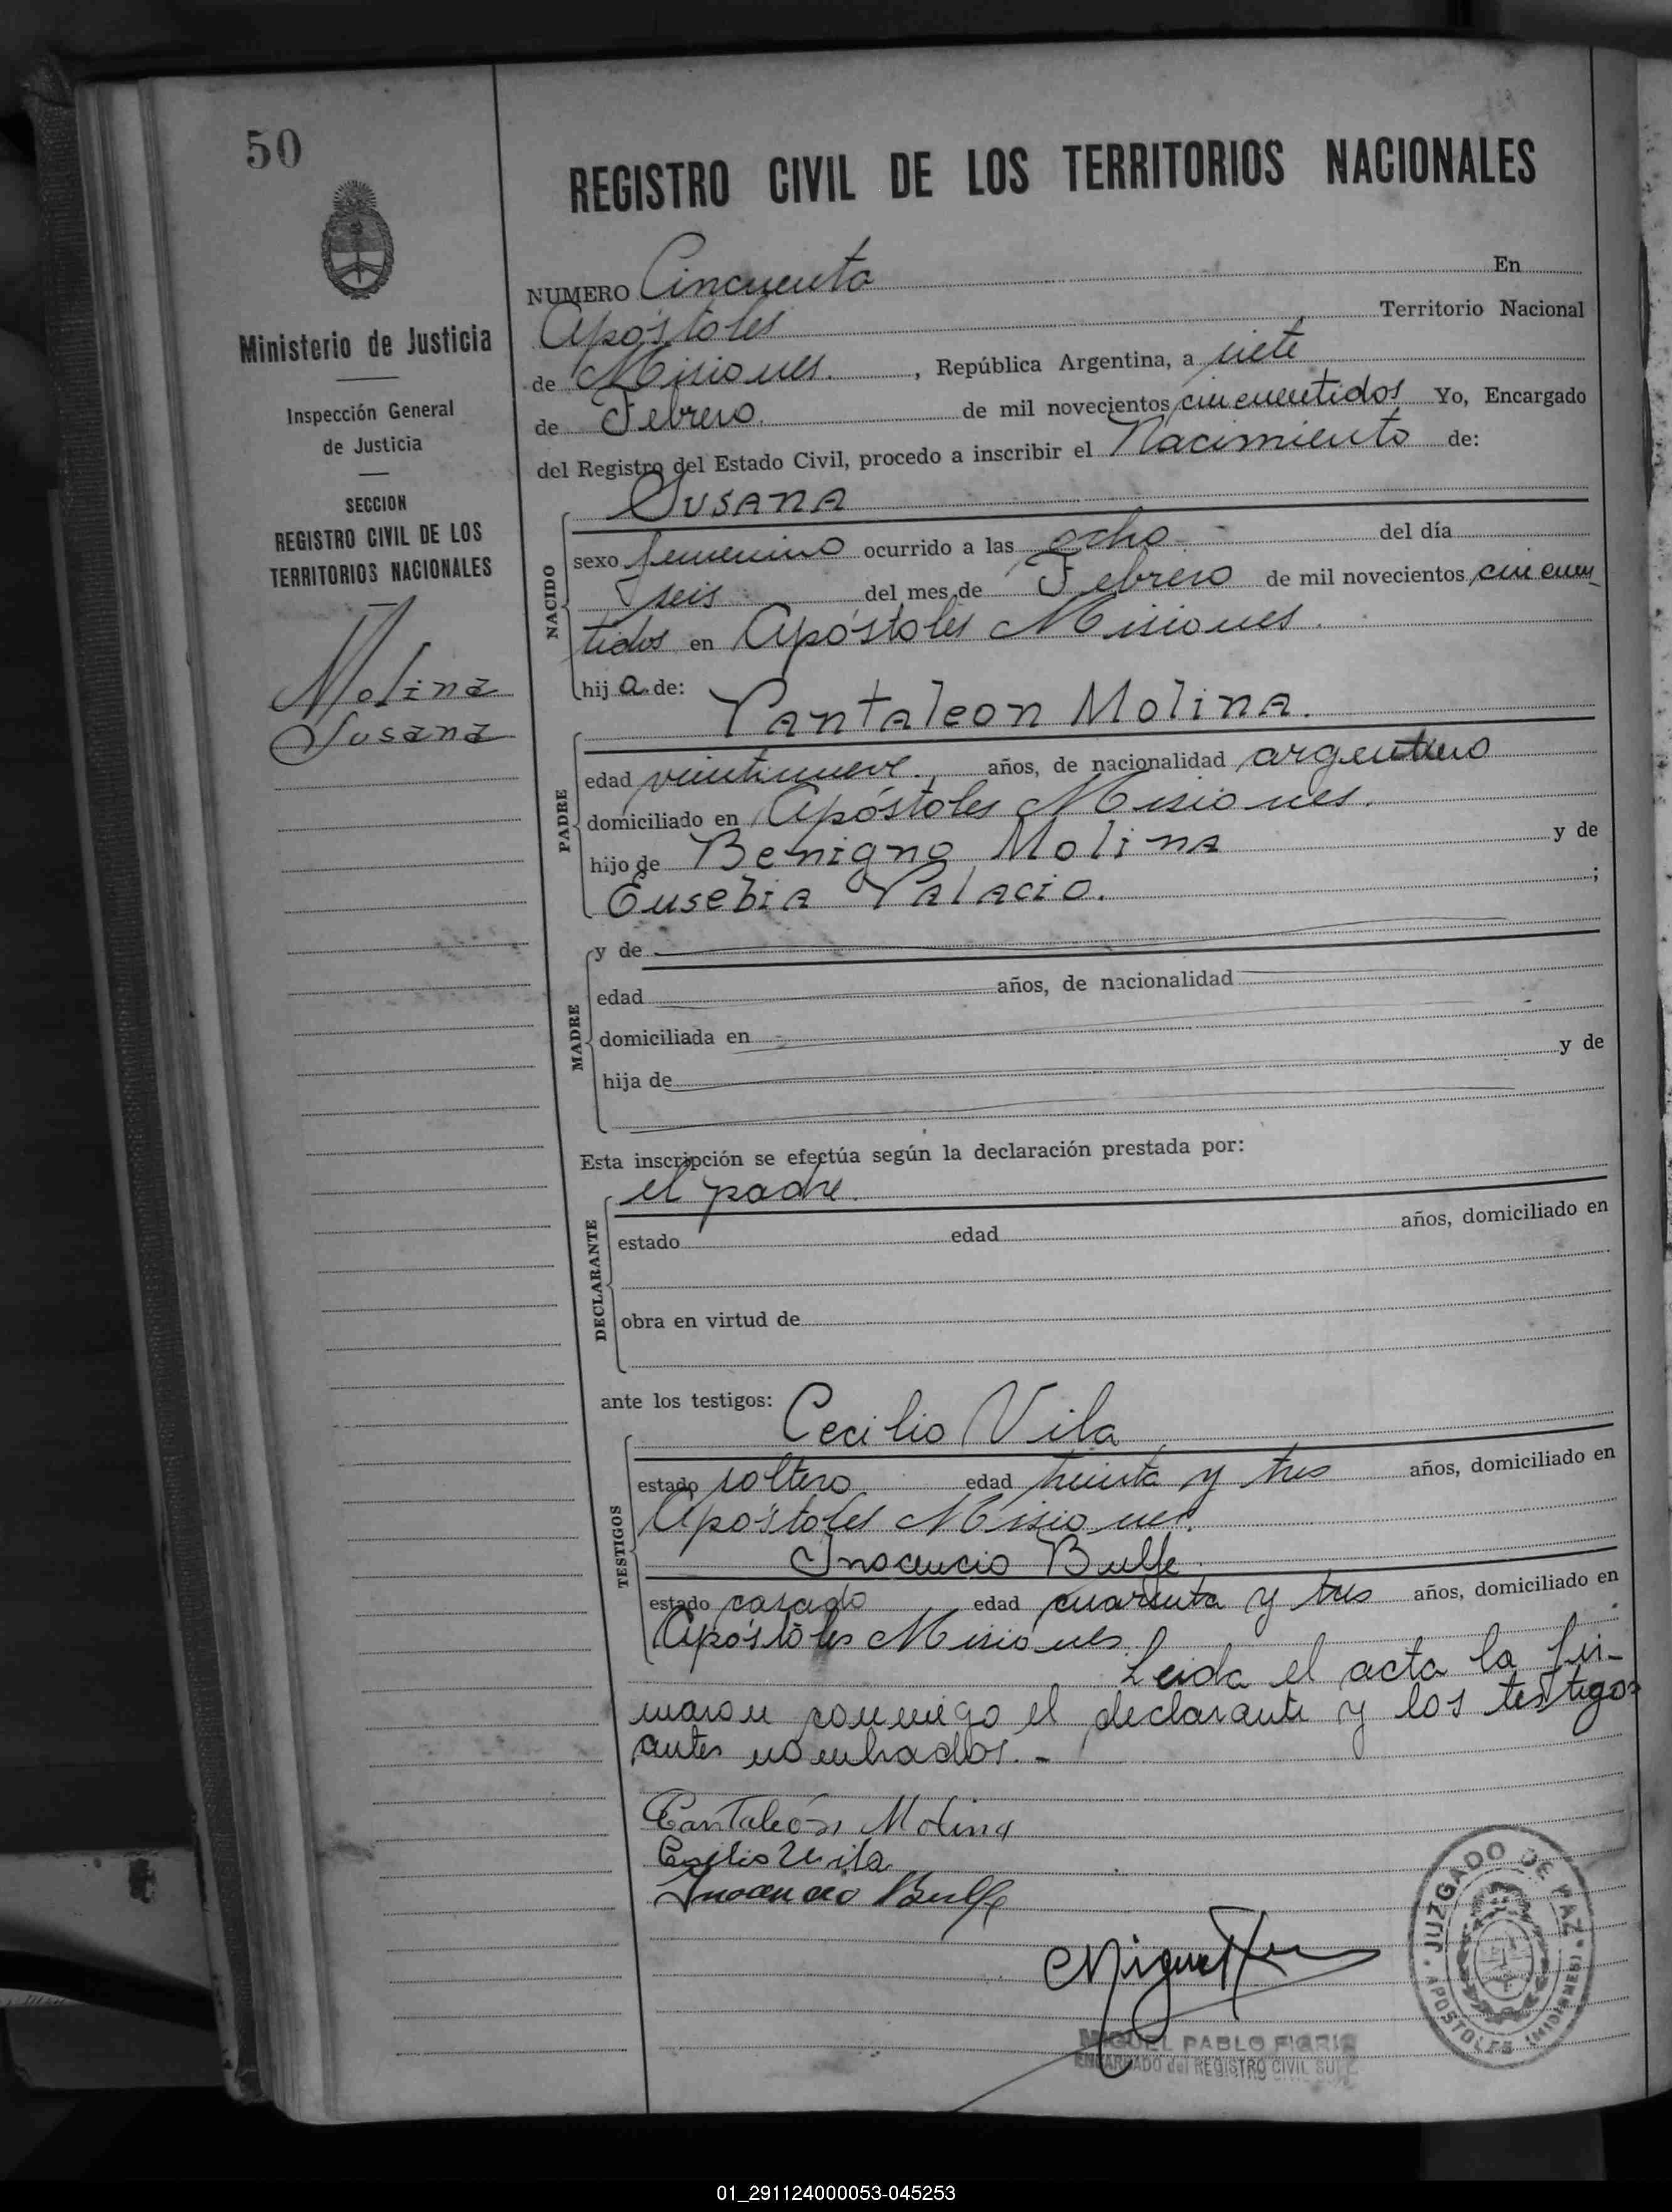 50
REGISTRO CIVIL DE LOS TERRITORIOS NACIONALES
Ministerio de Justicia
Inspección General
de Justicia
SECCION
REGISTRO CIVIL DE LOS
TERRITORIOS NACIONALES
Molina
Susana
NUMERO Cincuenta En
Apóstoles Territorio Nacional
de Misiones. , República Argentina, a siete
de Febrero. de mil novecientos cincuentidos Yo, Encargado
del Registro del Estado Civil, procedo a inscribir el Nacimiento de:
SUSANA
NACIDO
sexo femenino ocurrido a las ocho - del día
seis del mes de Febrero de mil novecientos cincuen-
tidos en Apóstoles Misiones.
hij a de:
Pantaleon Molina.
PADRE
edad veintinueve. años, de nacionalidad argentino
domiciliado en Apóstoles Misiones.
hijo de Benigno Molina y de
Eusebia Palacio. ;
MADRE
y de
edad años, de nacionalidad
domiciliada en
hija de y de
Esta inscripción se efectúa según la declaración prestada por:
el padre.
DECLARANTE
estado edad años, domiciliado en
obra en virtud de
ante los testigos: Cecilio Vila
TESTIGOS
estado soltero edad treinta y tres años, domiciliado en
Apóstoles Misiones.
Inocencio Bulfe.
estado casado edad cuarenta y tres años, domiciliado en
Apóstoles Misiones.
Leida el acta la fir-
maron conmigo el declarante y los testigos
antes nombrados. -
Pantaleón Molina
Cecilio Vila
Inocencio Bulfe
Miguel
JUZGADO DE PAZ
APOSTOLES (MISIONES)
MIGUEL PABLO
ENCARGADO del REGISTRO CIVIL SUPL.
01_291124000053-045253